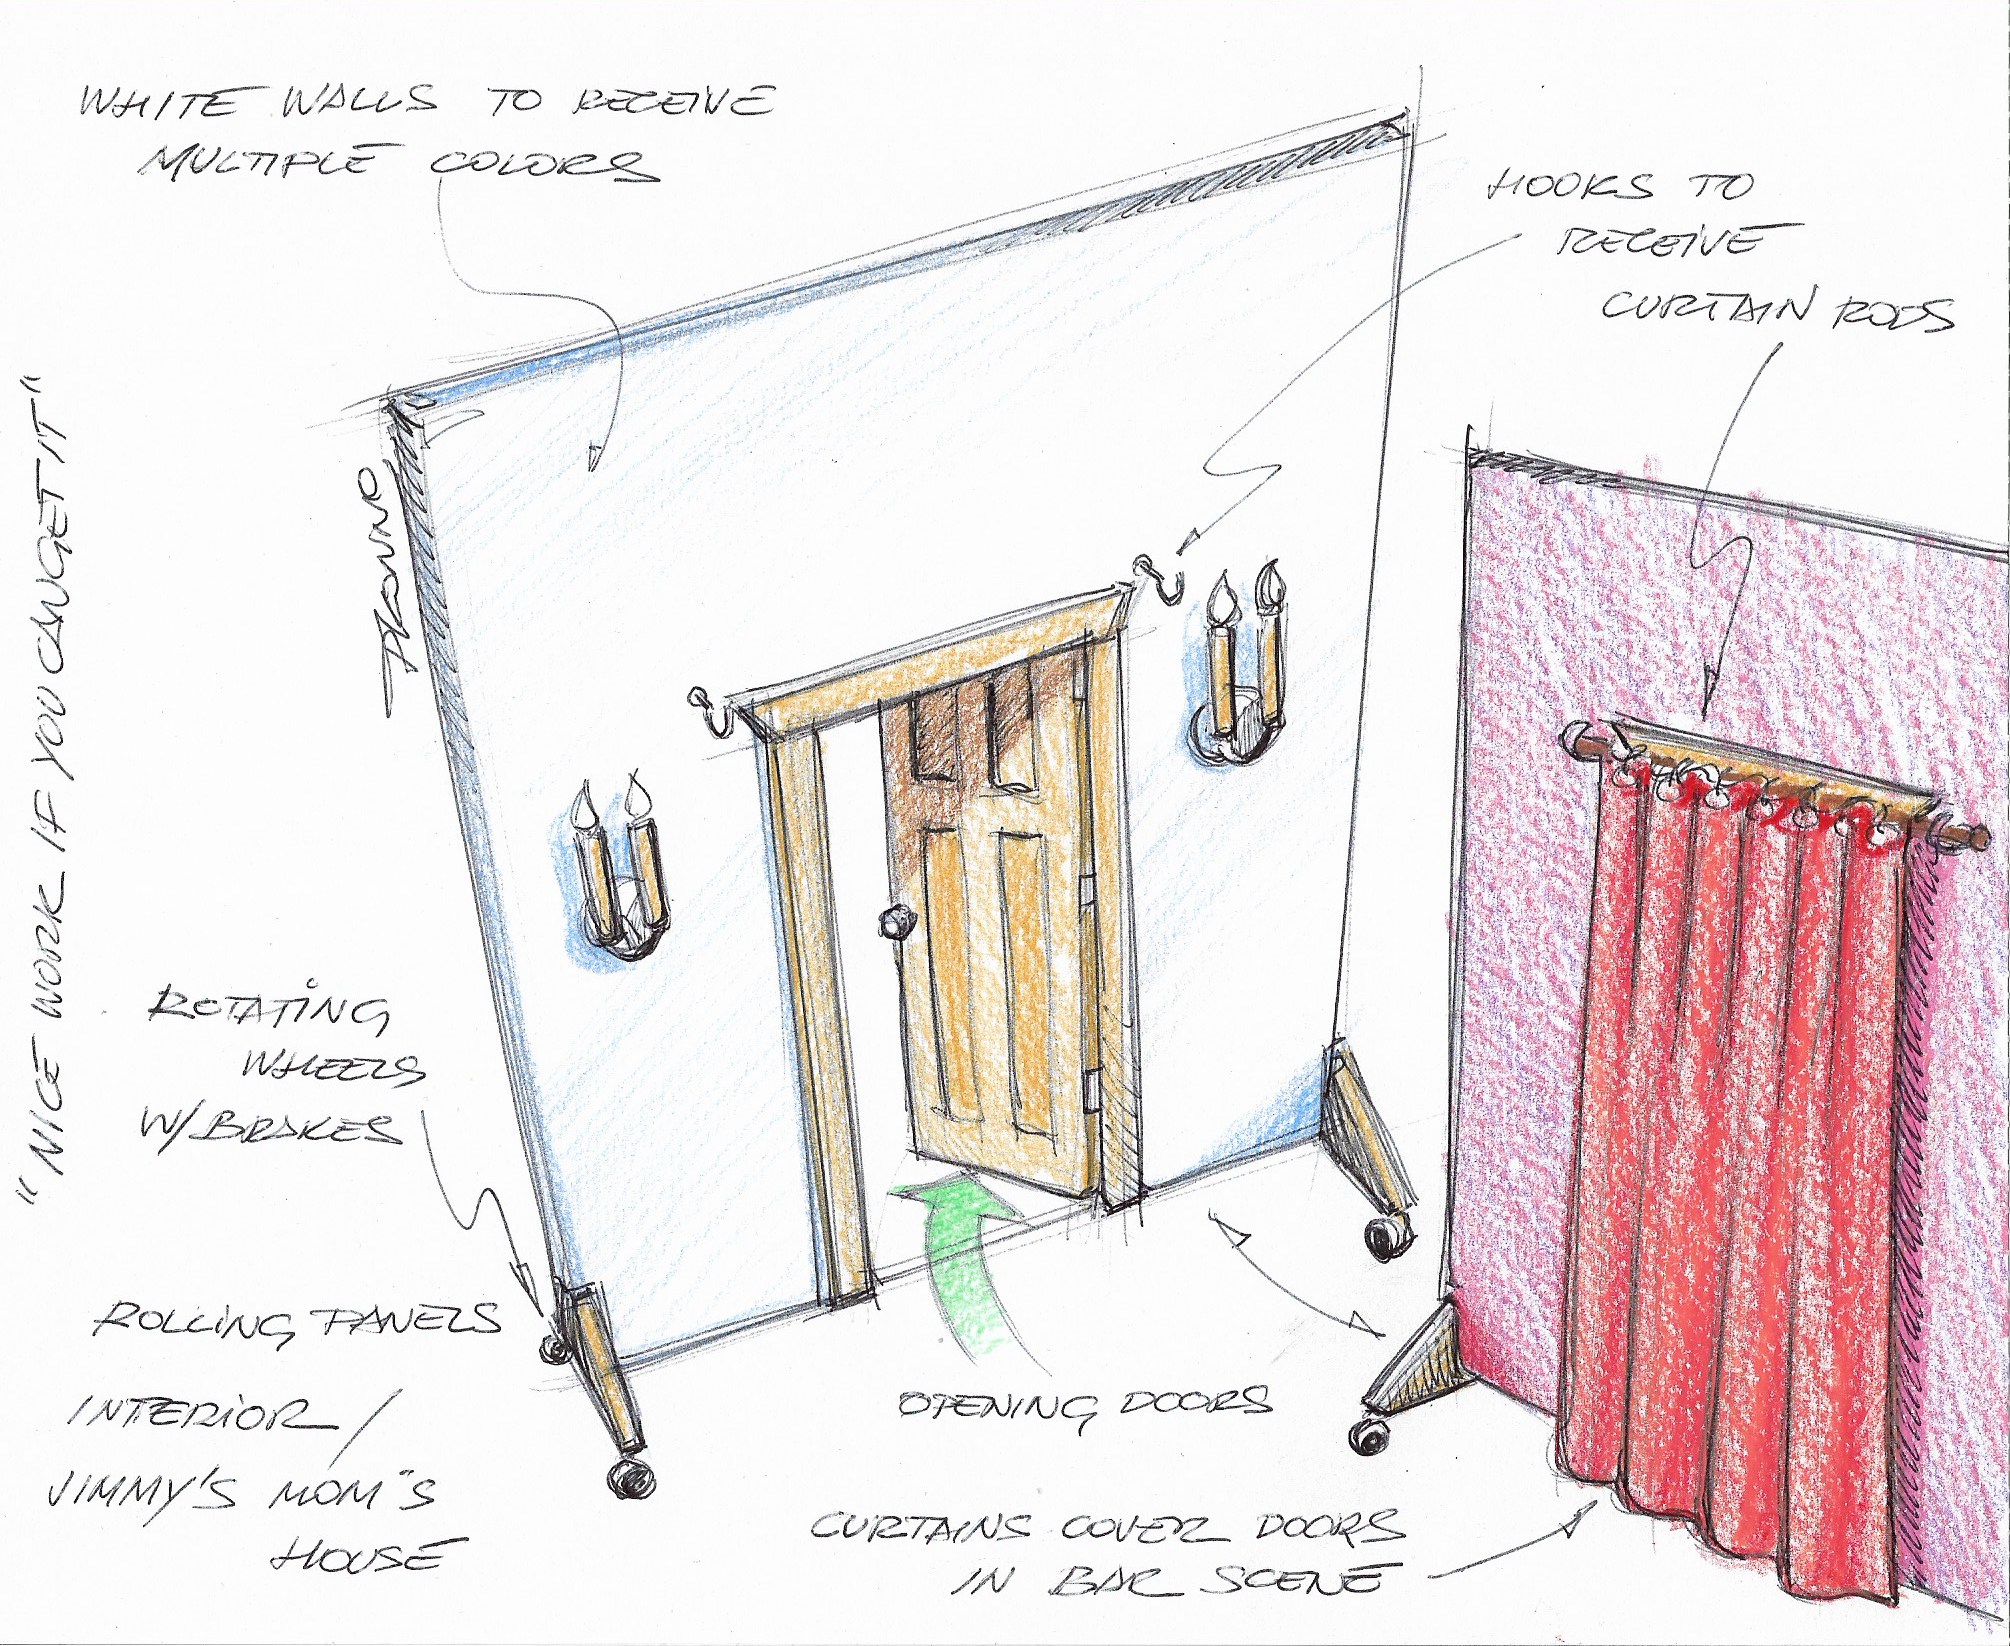 WHITE WALLS TO RECEIVE
MULTIPLE COLORS
HOOKS TO
RECEIVE
CURTAIN RODS
"NICE WORK IF YOU CANGET IT"
ROTATING
WHEELS
W/BRAKES
ROLLING PANELS
INTERIOR /
JIMMY'S MOM"S
HOUSE
OPENING DOORS
CURTAINS COVER DOORS
IN BAR SCENE